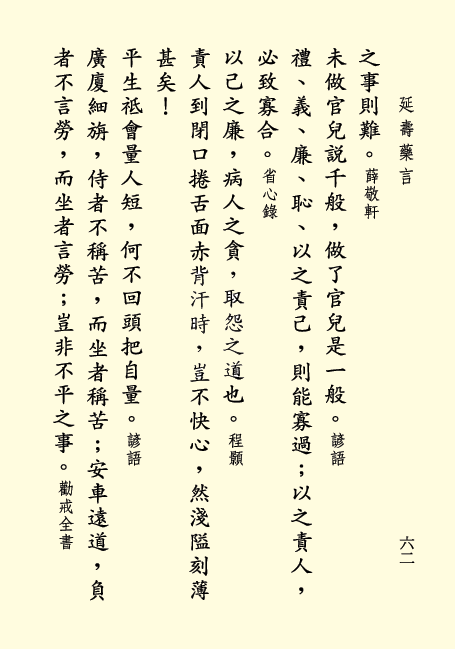 延壽藥言
六二
之事則難。薛敬軒
未做官兒說千般，做了官兒是一般。諺語
禮、義、廉、恥、以之責己，則能寡過；以之責人，
必致寡合。省心錄
以己之廉，病人之貪，取怨之道也。程顥
責人到閉口捲舌面赤背汗時，豈不快心，然淺隘刻薄
甚矣！
平生祗會量人短，何不回頭把自量。諺語
廣廈細旃，侍者不稱苦，而坐者稱苦；安車遠道，負
者不言勞，而坐者言勞；豈非不平之事。勸戒全書